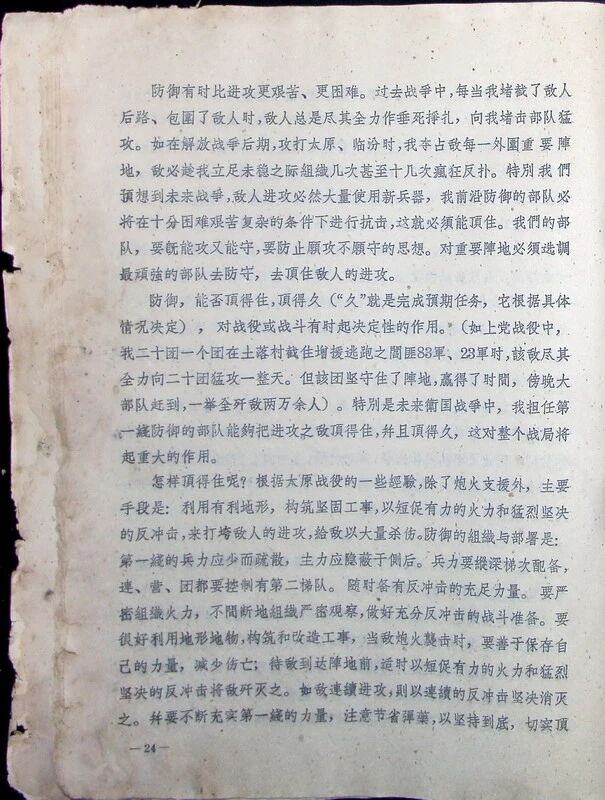 防御有时比进攻更艰苦、更困难。过去战争中，每当我堵截了敌人
后路、包圍了敌人时，敌人总是尽其全力作垂死挣扎，向我堵击部队猛
攻。如在解放战争后期，攻打太原、临汾时，我夺占敌每一外圍重要陣
地，敌必趁我立足未稳之际組織几次甚至十几次瘋狂反扑。特别我們
預想到未来战爭，敌人进攻必然大量使用新兵器，我前沿防御的部队必
将在十分困难艰苦复杂的条件下进行抗击，这就必須能頂住。我們的部
队，要旣能攻又能守，要防止願攻不願守的思想。对重要陣地必須选調
最頑強的部队去防守，去頂住敌人的进攻。
防御，能否頂得住，頂得久（“久”就是完成預期任务，它根据具体
情况决定），对战役或战斗有时起决定性的作用。（如上党战役中，
我二十团一个团在土落村截住增援逃跑之閻匪83軍、23軍时，該敌尽其
全力向二十团猛攻一整天。但該团坚守住了陣地，贏得了时間，傍晚大
部队赶到，一举全歼敌两万余人）。特別是未来衛国战爭中，我担任第
一綫防御的部队能夠把进攻之敌頂得住，幷且頂得久，这对整个战局将
起重大的作用。
怎样頂得住呢？根据太原战役的一些經驗，除了炮火支援外，主要
手段是：利用有利地形，构筑坚固工事，以短促有力的火力和猛烈坚决
的反冲击，来打垮敌人的进攻，給敌以大量杀伤。防御的組織与部署是：
第一綫的兵力应少而疏散，主力应隐蔽于側后。兵力要縱深梯次配备，
連、营、团都要控制有第二梯队。随时备有反冲击的充足力量。要严
密組織火力，不間断地組織严密观察，做好充分反冲击的战斗准备。要
很好利用地形地物，构筑和改造工事，当敌炮火襲击时，要善于保存自
己的力量，减少伤亡；待敌到达陣地前，适时以短促有力的火力和猛烈
坚决的反冲击将敌歼灭之。如敌連續进攻，則以連續的反冲击坚决消灭
之。幷要不断充实第一綫的力量，注意节省彈藥，以坚持到底，切实頂
—24—